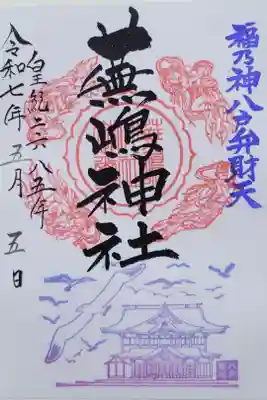 福乃神八戸弁財天
蕪嶋神社
皇紀二六八五年
令和七年五月五日